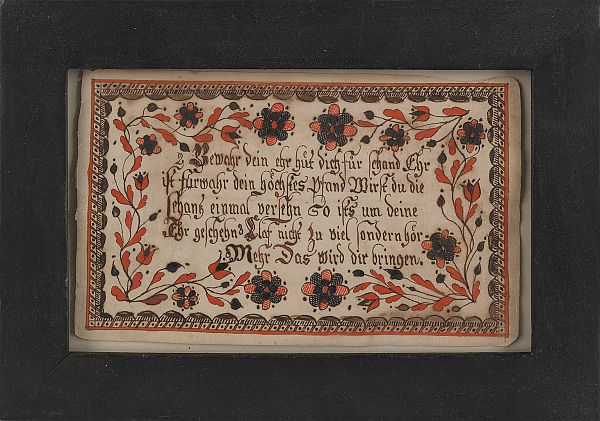 2 Bewahr dein ehr hüt dich für schand Ehr
ist fürwahr dein höchstes Pfand Wirst du die
schantz einmal versehn So ists um deine
Ehr geschehn 3 Claf nicht zu viel sondern hör
Mehr Das wird dir bringen